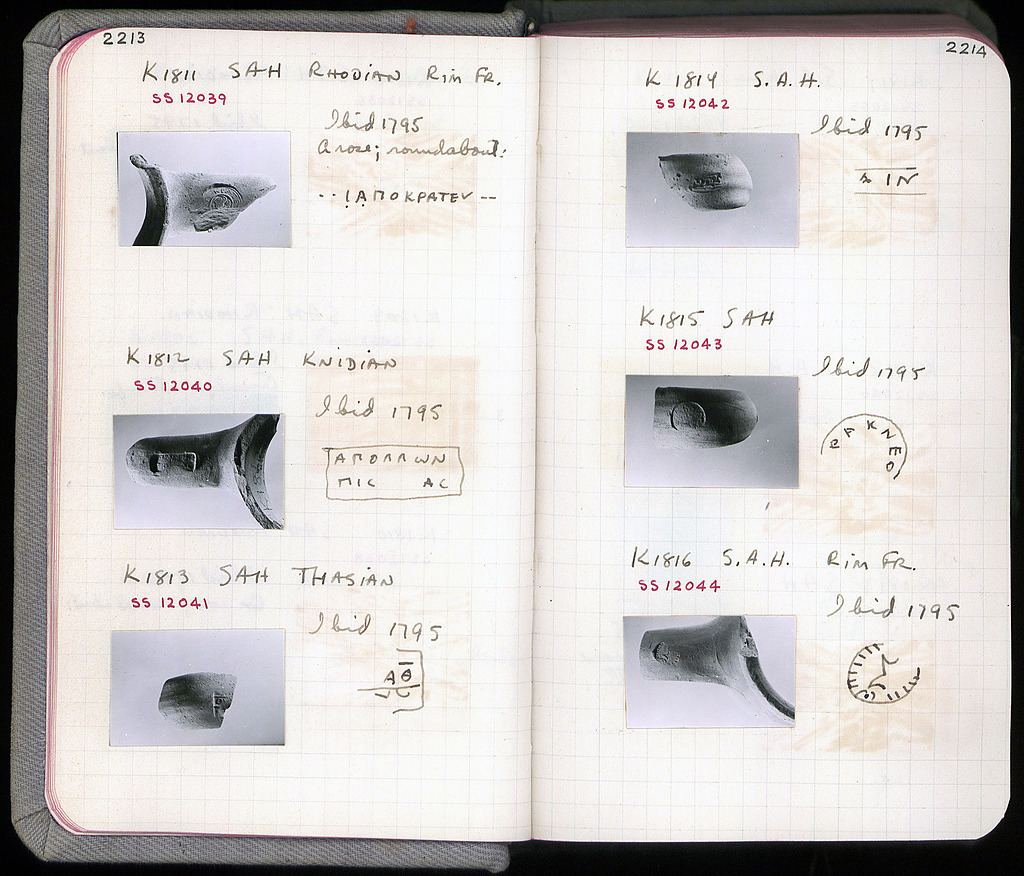 2213
K 1811 SAH RHODIAN RIM FR.
SS 12039
Ibid 1795
A rose; roundabout:
--ΙΑΠΟΚΡΑΤΕΥ--
K 1812 SAH KNIDIAN
SS 12040
Ibid 1795
ΑΠΟΛΛΩΝ
ΠΙΣ ΑΣ
K 1813 SAH THASIAN
SS 12041
Ibid 1795
2214
K 1814 S.A.H.
SS 12042
Ibid 1795
ΙΝ
K 1815 SAH
SS 12043
Ibid 1795
K 1816 S.A.H. RIM FR.
SS 12044
Ibid 1795